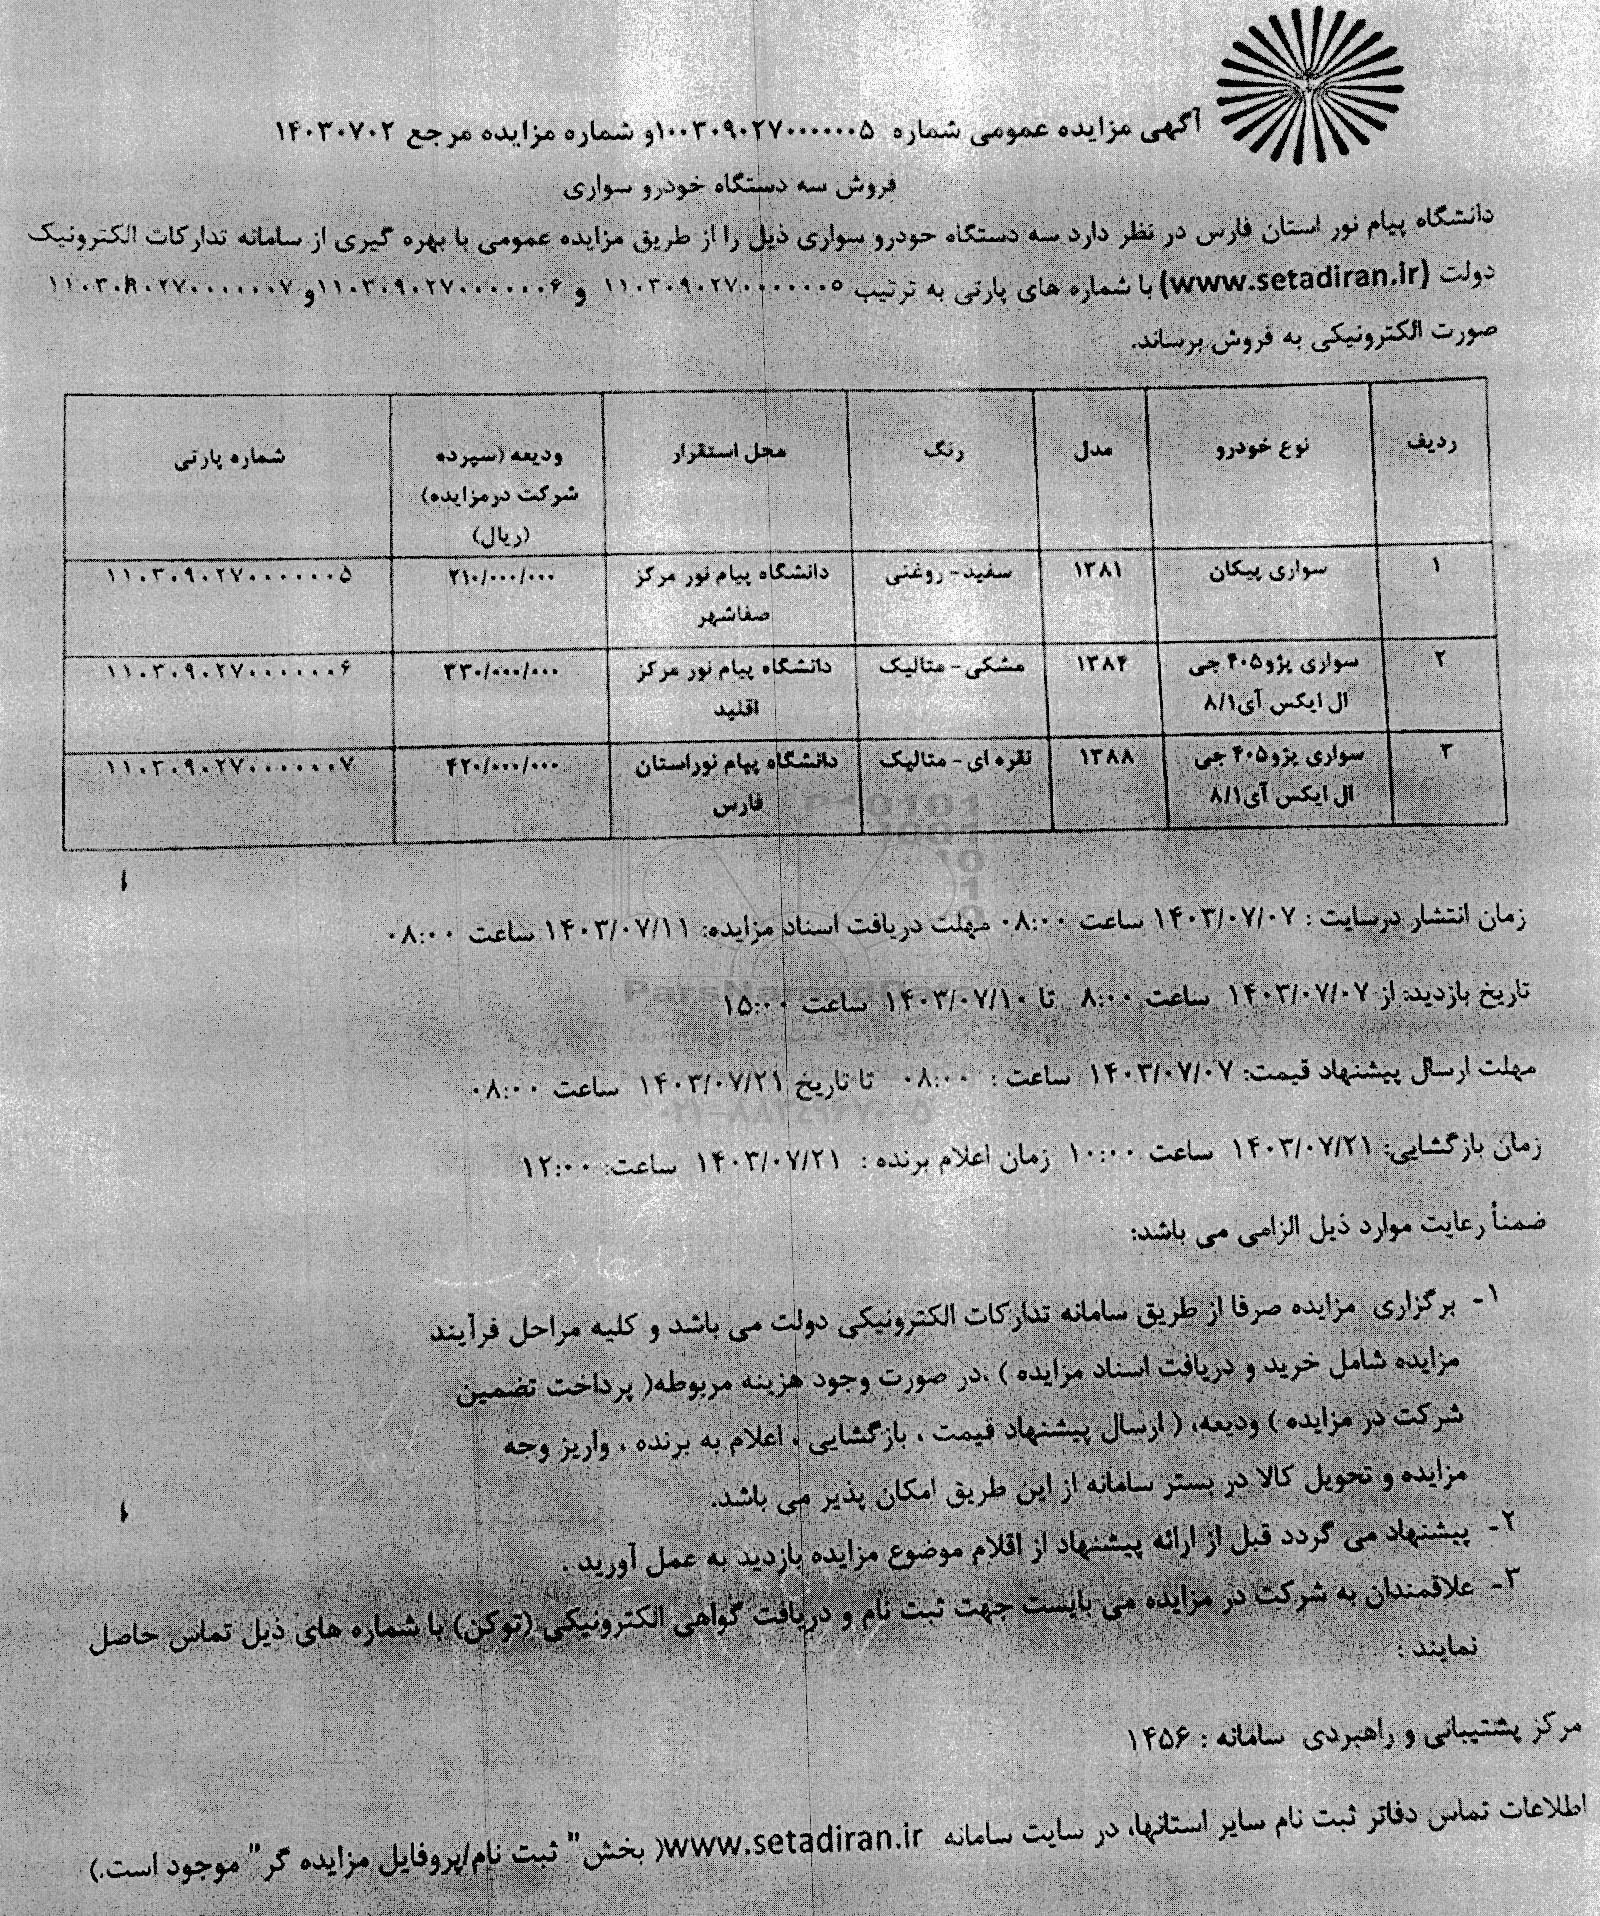 آگهی مزایده عمومی شماره ۱۰۰۳۰۹۰۲۷۰۰۰۰۰۰۵و شماره مزایده مرجع ۱۴۰۳۰۷۰۲
فروش سه دستگاه خودرو سواری
دانشگاه پیام نور استان فارس در نظر دارد سه دستگاه خودرو سواری ذیل را از طریق مزایده عمومی با بهره گیری از سامانه تدارکات الکترونیک
دولت (www.setadiran.ir) با شماره های پارتی به ترتیب ۱۱۰۳۰۹۰۲۷۰۰۰۰۰۰۵ و ۱۱۰۳۰۹۰۲۷۰۰۰۰۰۰۶و ۱۱۰۳۰۹۰۲۷۰۰۰۰۰۰۷
صورت الکترونیکی به فروش برساند.
ردیف نوع خودرو مدل رنگ محل استقرار ودیعه (سپرده شماره پارتی
شرکت درمزایده)
(ریال)
۱ سواری پیکان ۱۳۸۱ سفید- روغنی دانشگاه پیام نور مرکز ۲۱۰/۰۰۰/۰۰۰ ۱۱۰۳۰۹۰۲۷۰۰۰۰۰۰۵
صفاشهر
۲ سواری پژو۴۰۵ جی ۱۳۸۴ مشکی- متالیک دانشگاه پیام نور مرکز ۳۳۰/۰۰۰/۰۰۰ ۱۱۰۳۰۹۰۲۷۰۰۰۰۰۰۶
ال ایکس آی۸/۱ اقلید
۳ سواری پژو۴۰۵ جی ۱۳۸۸ نقره ای- متالیک دانشگاه پیام نوراستان ۴۲۰/۰۰۰/۰۰۰ ۱۱۰۳۰۹۰۲۷۰۰۰۰۰۰۷
ال ایکس آی۸/۱ فارس
زمان انتشار درسایت : ۱۴۰۳/۰۷/۰۷ ساعت ۰۸:۰۰ مهلت دریافت اسناد مزایده: ۱۴۰۳/۰۷/۱۱ ساعت ۰۸:۰۰
تاریخ بازدید: از ۱۴۰۳/۰۷/۰۷ ساعت ۸:۰۰ تا ۱۴۰۳/۰۷/۱۰ ساعت ۱۵:۰۰
مهلت ارسال پیشنهاد قیمت: ۱۴۰۳/۰۷/۰۷ ساعت : ۰۸:۰۰ تا تاریخ ۱۴۰۳/۰۷/۲۱ ساعت ۰۸:۰۰
زمان بازگشایی: ۱۴۰۳/۰۷/۲۱ ساعت ۱۰:۰۰ زمان اعلام برنده : ۱۴۰۳/۰۷/۲۱ ساعت: ۱۲:۰۰
ضمناً رعایت موارد ذیل الزامی می باشد:
۱- برگزاری مزایده صرفا از طریق سامانه تدارکات الکترونیکی دولت می باشد و کلیه مراحل فرآیند
مزایده شامل خرید و دریافت اسناد مزایده ) .در صورت وجود هزینه مربوطه( پرداخت تضمین
شرکت در مزایده ) ودیعه، ( ارسال پیشنهاد قیمت ، بازگشایی ، اعلام به برنده ، واریز وجه
مزایده و تحویل کالا در بستر سامانه از این طریق امکان پذیر می باشد.
۲- پیشنهاد می گردد قبل از ارائه پیشنهاد از اقلام موضوع مزایده بازدید به عمل آورید .
۳- علاقمندان به شرکت در مزایده می بایست جهت ثبت نام و دریافت گواهی الکترونیکی (توکن) با شماره های ذیل تماس حاصل
نمایند :
مرکز پشتیبانی و راهبردی سامانه : ۱۴۵۶
اطلاعات تماس دفاتر ثبت نام سایر استانها، در سایت سامانه www.setadiran.ir( بخش" ثبت نام/پروفایل مزایده گر" موجود است.)